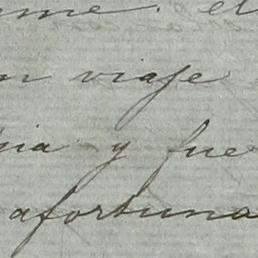 me. el
n viaje
nia y fue
afortuna